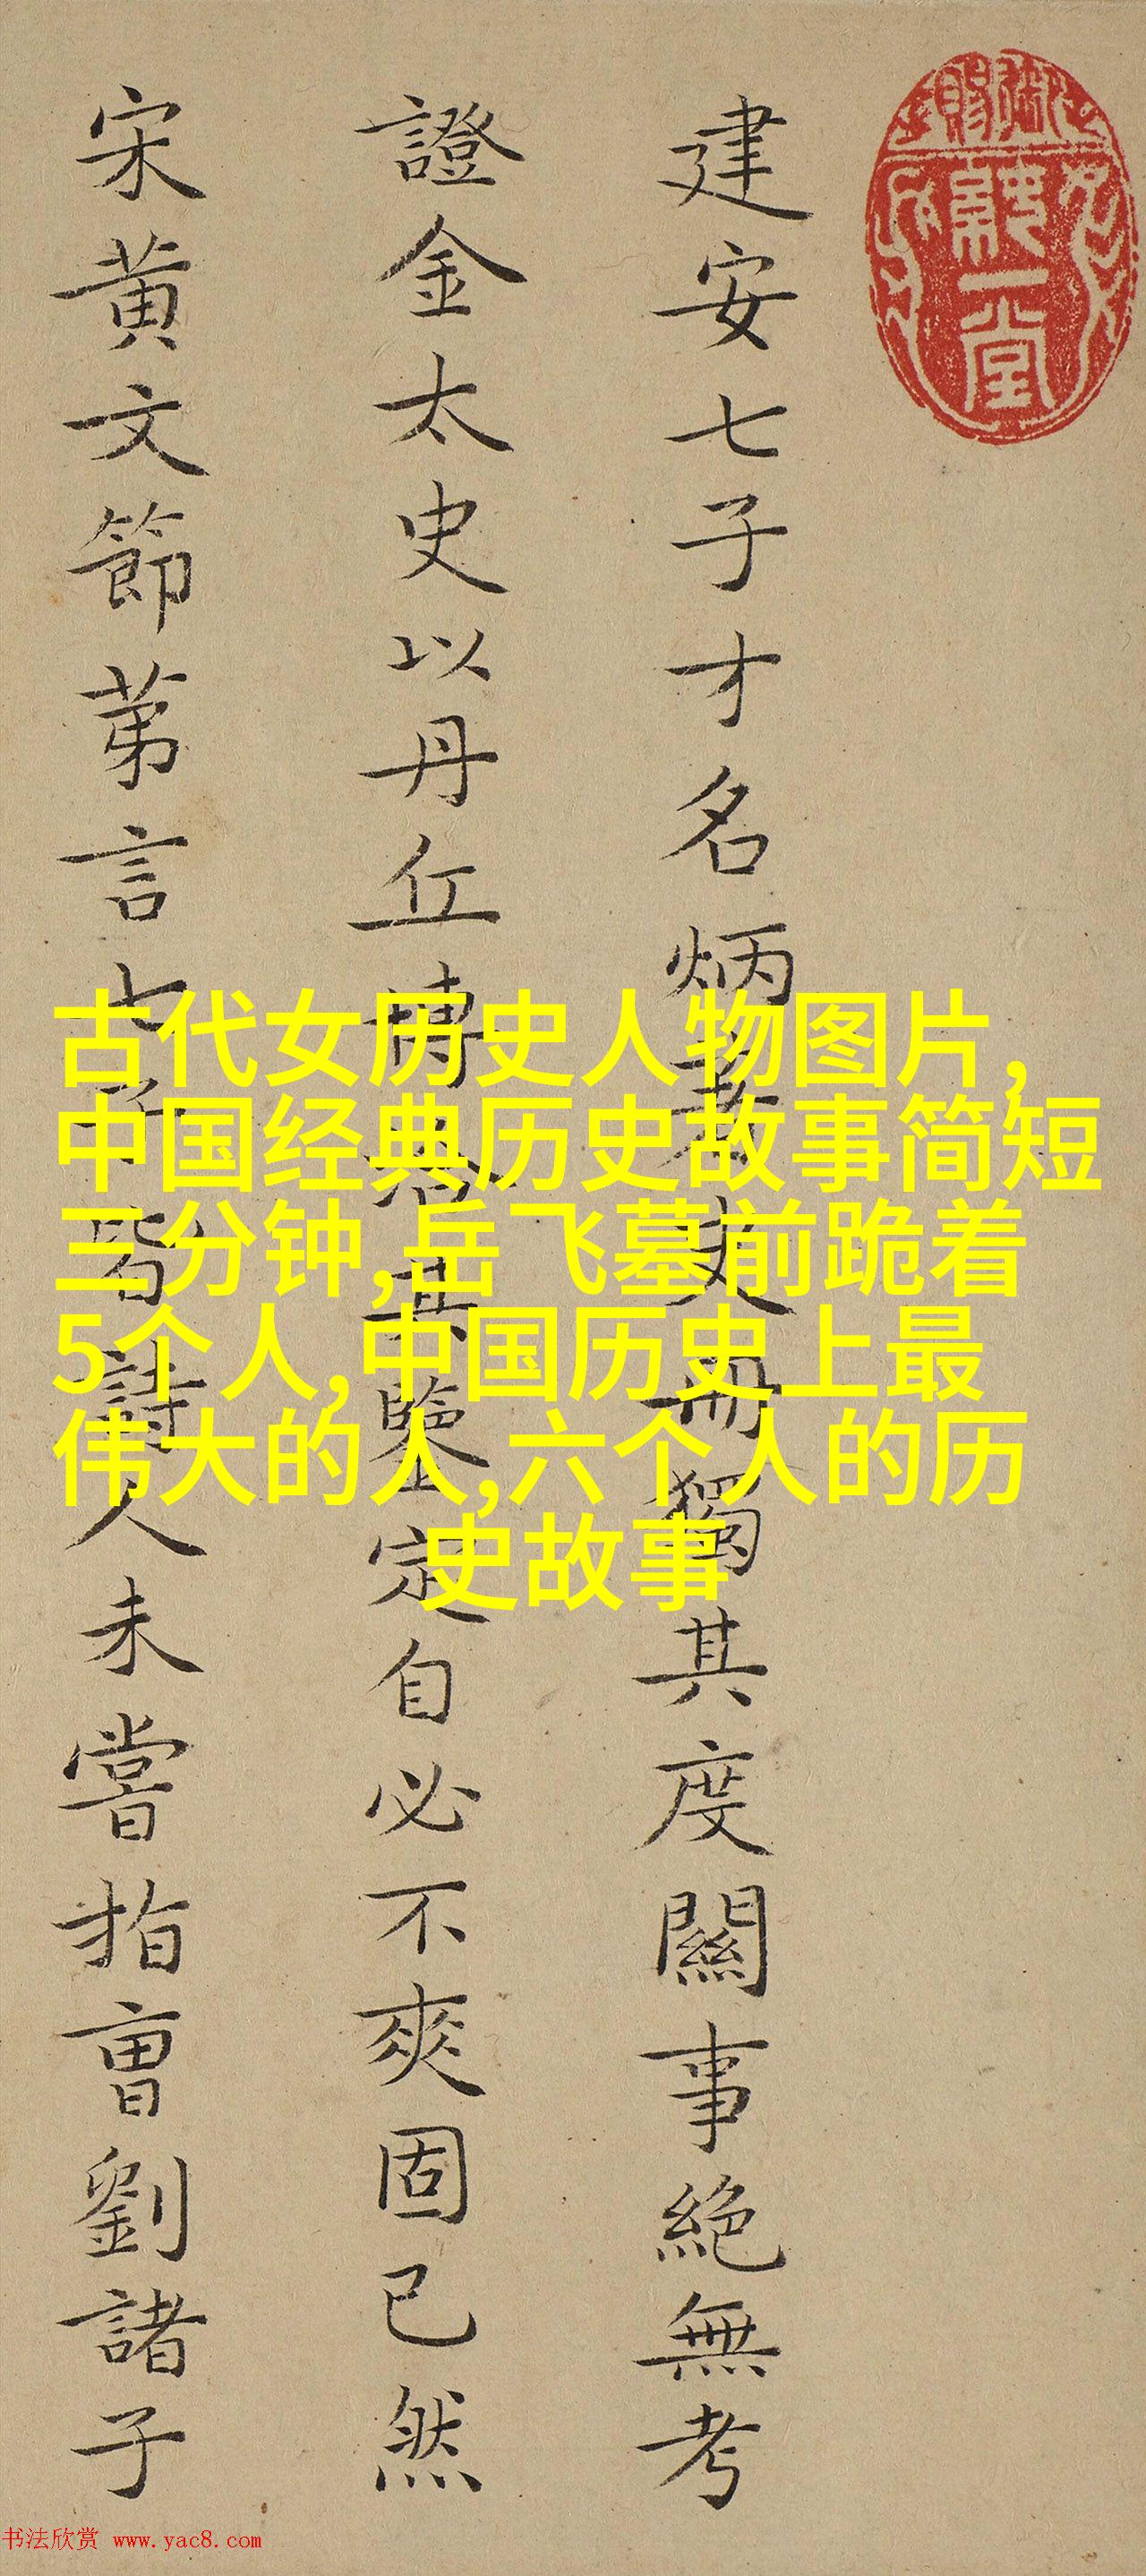 建安七子才名炳著史冊獨其度關事絕無考
證金太史以丹丘博洽其鑒定自必不爽固已然
宋黃文節苐言七子皆詩人未嘗指曹劉諸子
古代女历史人物图片,
中国经典历史故事简短
三分钟,岳飞墓前跪着
5个人,中国历史上最
伟大的人,六个人的历
史故事
书法欣赏 www.yac8.com